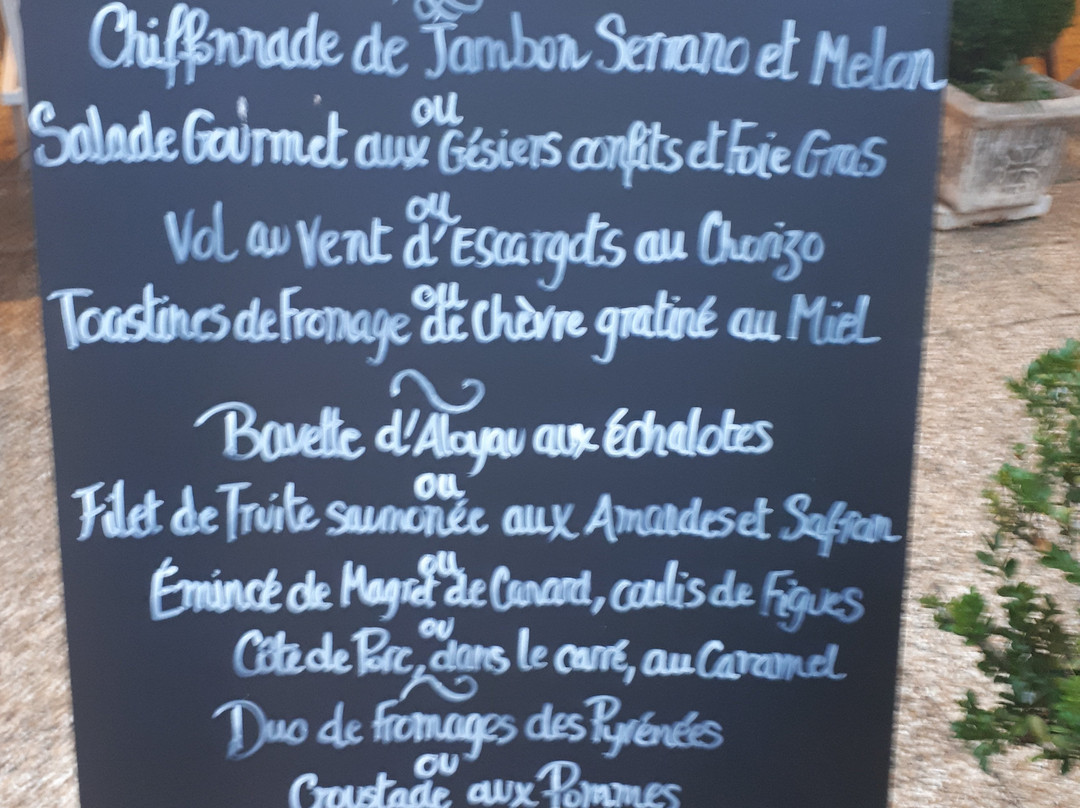 Chiffonnade de Jambon Serrano et Melon
ou
Salade Gourmet aux Gésiers confits et Foie Gras
ou
Vol au Vent d'Escargots au Chorizo
ou
Toastines de Fromage de Chèvre gratiné au Miel
Bavette d'Aloyau aux échalotes
ou
Filet de Truite saumonée aux Amandes et Safran
ou
Émincé de Magret de Canard, coulis de Figues
ou
Côte de Porc, dans le carré, au Caramel
Duo de fromages des Pyrénées
ou
Croustade aux Pommes